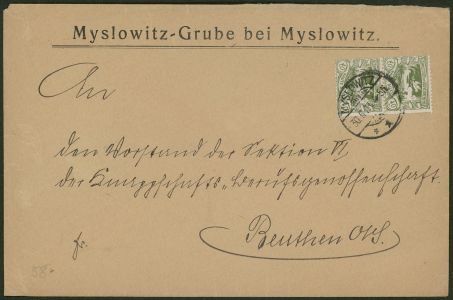 Myslowitz-Grube bei Myslowitz.
MYSLOWITZ
An
den Vorstand der Sektion VI
der Knappschafts-Berufsgenossenschaft.
Beuthen O/S.
fr.